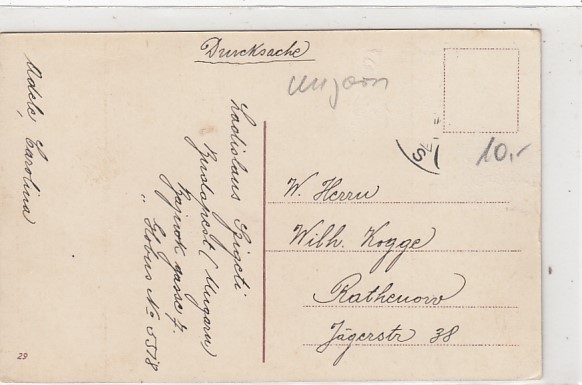 Drucksache
Ungarn
Adele, Carolina
Ladislaus Szigeti
Budapest (Ungarn
gasse 7.
„ Globus No 5518
10,-
W. Herrn
Wilh. Kogge
Rathenow
Jägerstr 38
29